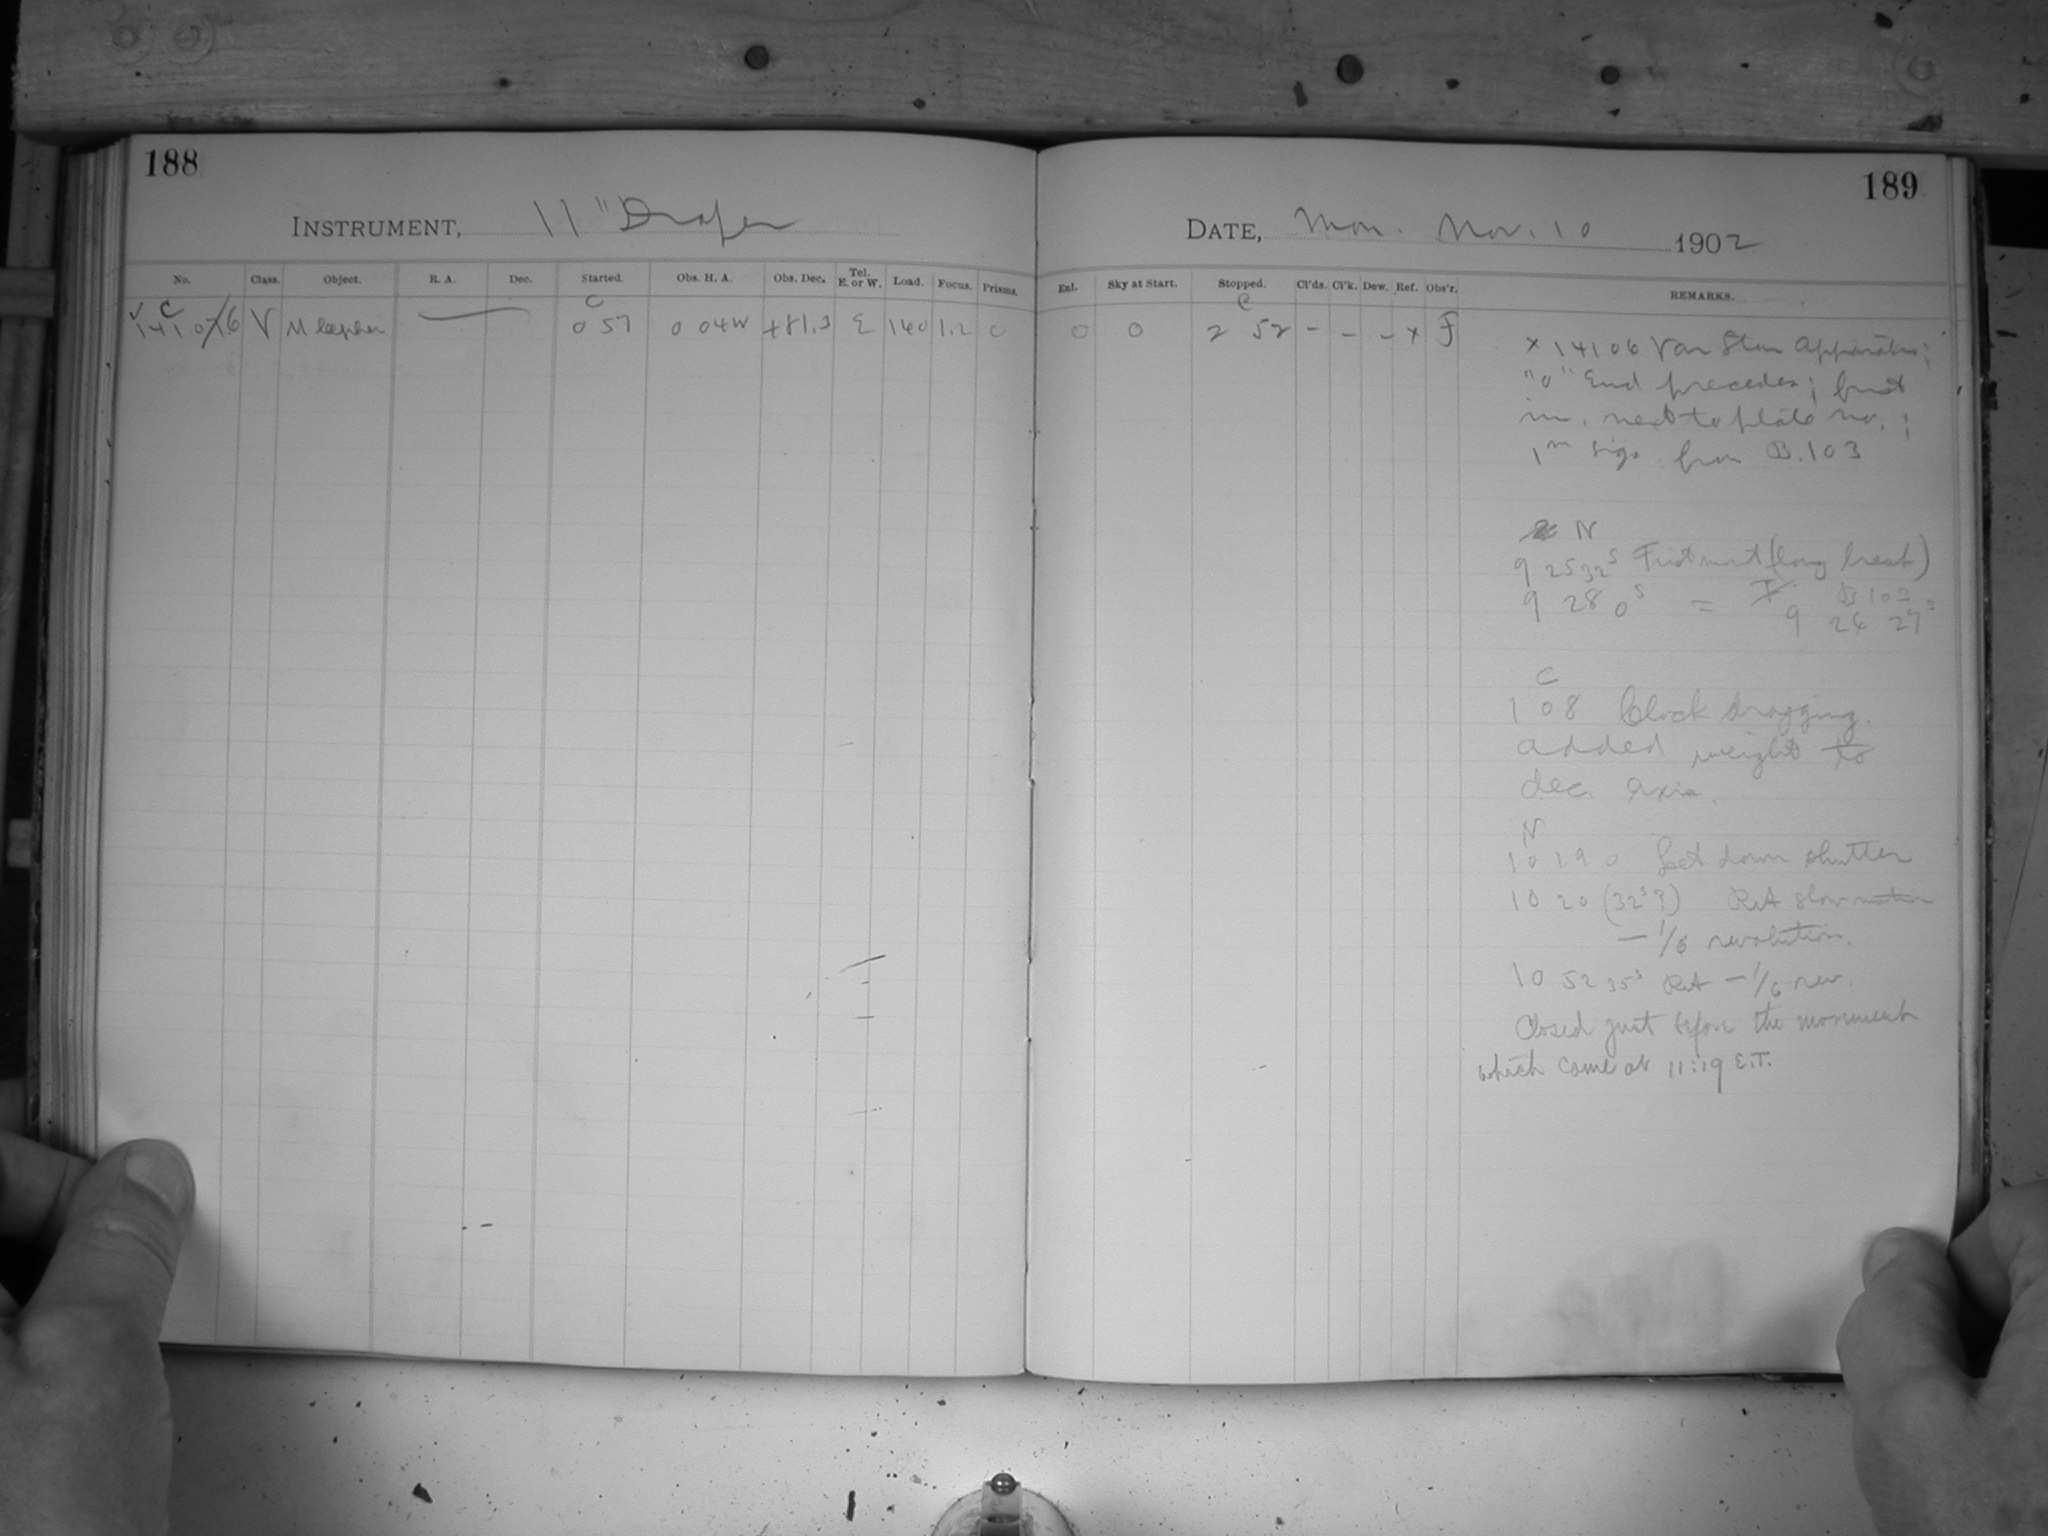 188
INSTRUMENT, 11" Draper
No. Class. Object. R. A. Dec. Started. Obs. H. A. Obs. Dec. Tel. E. or W. Load. Focus. Prisms.
C C
14106 V M Cephei 0 57 0 04W +81.3 E 140 1.2 0
189
DATE, Mon. Nov. 10 1902
Enl. Sky at Start. Stopped. Cl'ds. Cl'k. Dew. Ref. Obs'r. REMARKS.
C
0 0 2 52 - - - x F
x 14106 Var Star Apparatus;
"0" End precedes; first
im. next to plate no.;
1m sigs. from B.103
N
9 25 32s First movt (long beat)
9 28 0s = B 103
9 26 27s
C
1 08 Clock dragging.
added weight to
dec. axis.
N
10 19 0 Let down shutter
10 20 (32s?) RA slow motion
— 1/6 revolution.
10 52 35s RA — 1/6 rev.
Closed just before the movement
which came at 11:19 E.T.